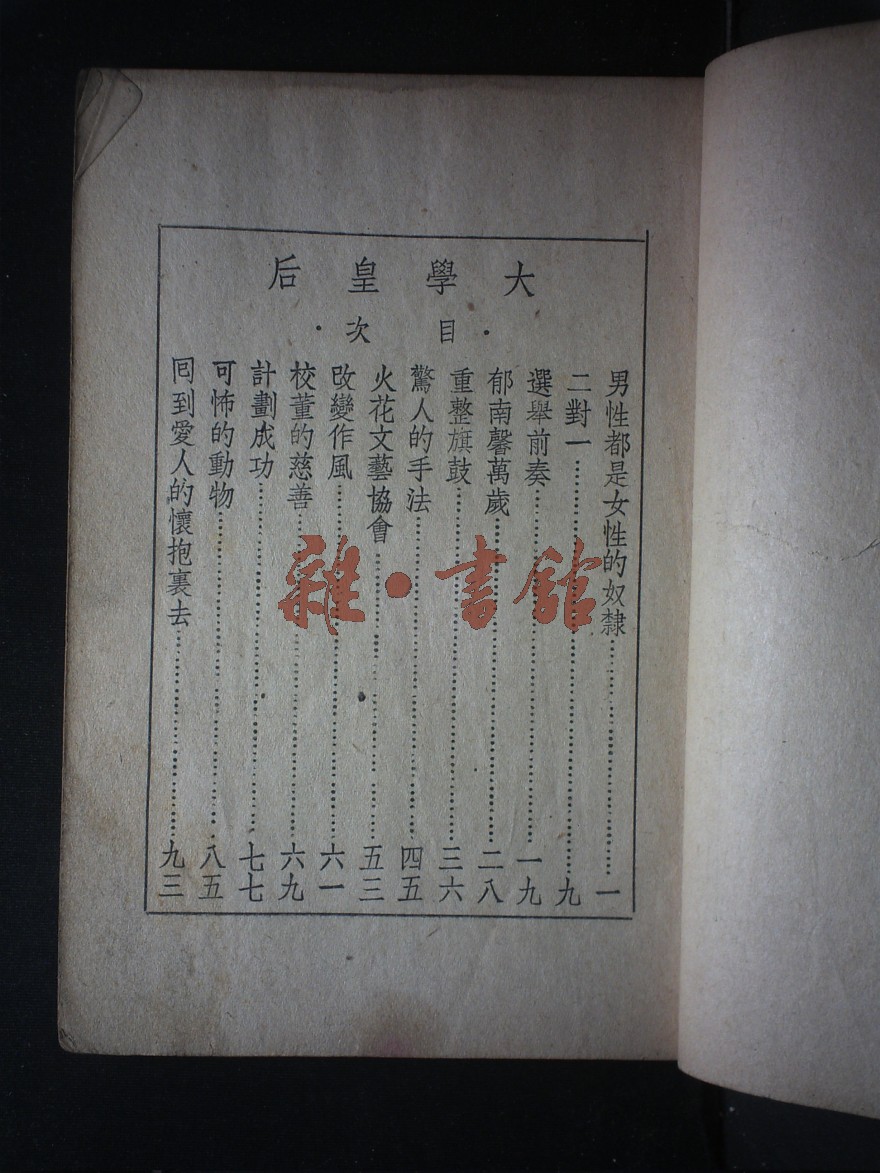 大學皇后
·目次·
男性都是女性的奴隸……一
二對一……九
選舉前奏……一九
郁南馨萬歲……二八
重整旗鼓……三六
驚人的手法……四五
火花文藝協會……五三
改變作風……六一
校董的慈善……六九
計劃成功……七七
可怖的動物……八五
囘到愛人的懷抱裏去……九三
雜·書館